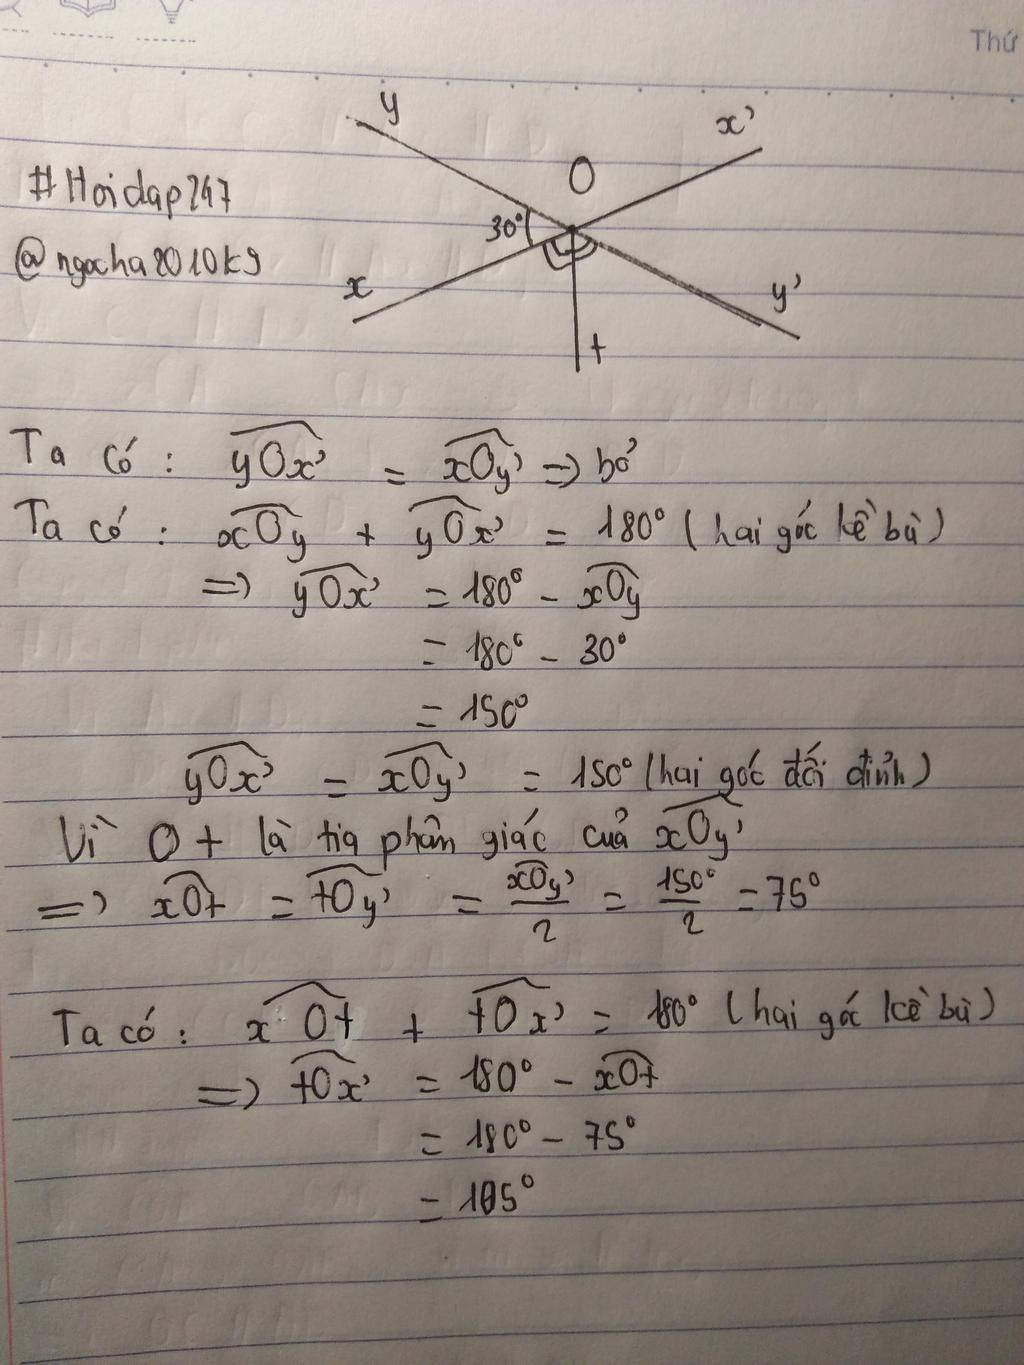 Thứ
y
x'
O
#Hoidap247
30°
@ngocha2010k9
x
y'
t
Ta có : yOx' = xOy' => bỏ
Ta có : xOy + yOx' = 180° (hai góc kề bù)
=> yOx' = 180° - xOy
= 180° - 30°
= 150°
yOx' = xOy' = 150° (hai góc đối đỉnh)
Vì Ot là tia phân giác của xOy'
=> xOt = tOy' = xOy'/2 = 150°/2 = 75°
Ta có : xOt + tOx' = 180° (hai góc kề bù)
=> tOx' = 180° - xOt
= 180° - 75°
= 105°